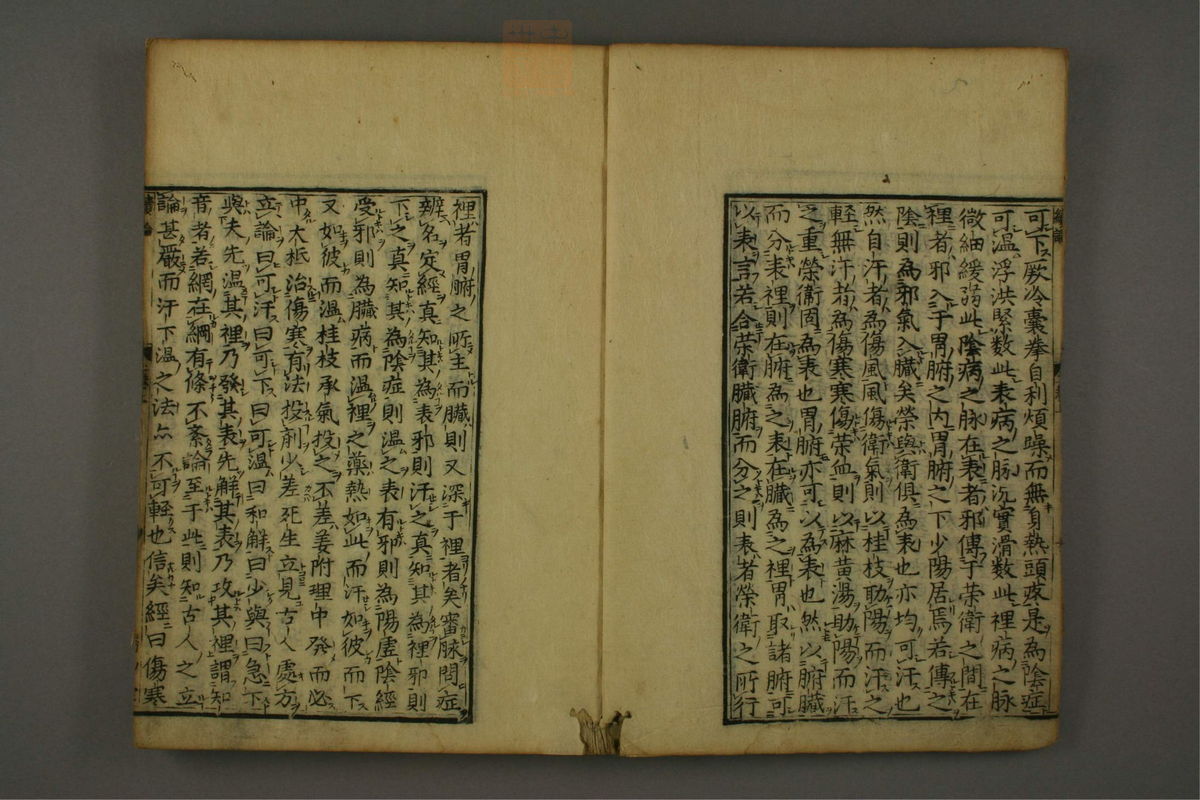 可下厥冷囊拳自利煩躁而無身熱頭疼是為陰症
可温浮洪緊数此表病之脉沉實滑数此裡病之脉
微細緩弱此陰病之脉在表者邪傳于荣衛之間在
裡者邪入于胃腑之内胃腑之下少陽居焉若傳之
陰則為邪氣入臓矣榮與衛俱為表也亦均可汗也
然自汗者為傷風風傷衛氣則以桂枝助陽而汗之
軽無汗者為傷寒寒傷荣血則以麻黄湯助陽而汗
之重榮衛固為表也胃腑亦可以為表也然以腑臓
而分表裡則在腑為之表在臓為之裡胃取諸腑可
以表言若合荣衛臓腑而分之則表者榮衛之所行
裡者胃腑之所主而臓則又深于裡者矣審脉問症
辨名定經真知其為表邪則汗之真知其為裡邪則
下之真知其為陰症則温之表有邪則為陽虚陰經
受邪則為臓病而温裡之藥熱如此而汗如彼而下
又如彼而温桂枝承氣投之不差姜附理中發而必
中大柢治傷寒有法投剤少差死生立見古人處方
立論曰可汗曰可下曰可温曰和解曰少與曰急下
與夫先温其裡乃發其表先解其表乃攻其裡謂知
音者若網在綱有條不紊論至于此則知古人之立
論甚嚴而汗下温之法亦不可軽也信矣經曰傷寒